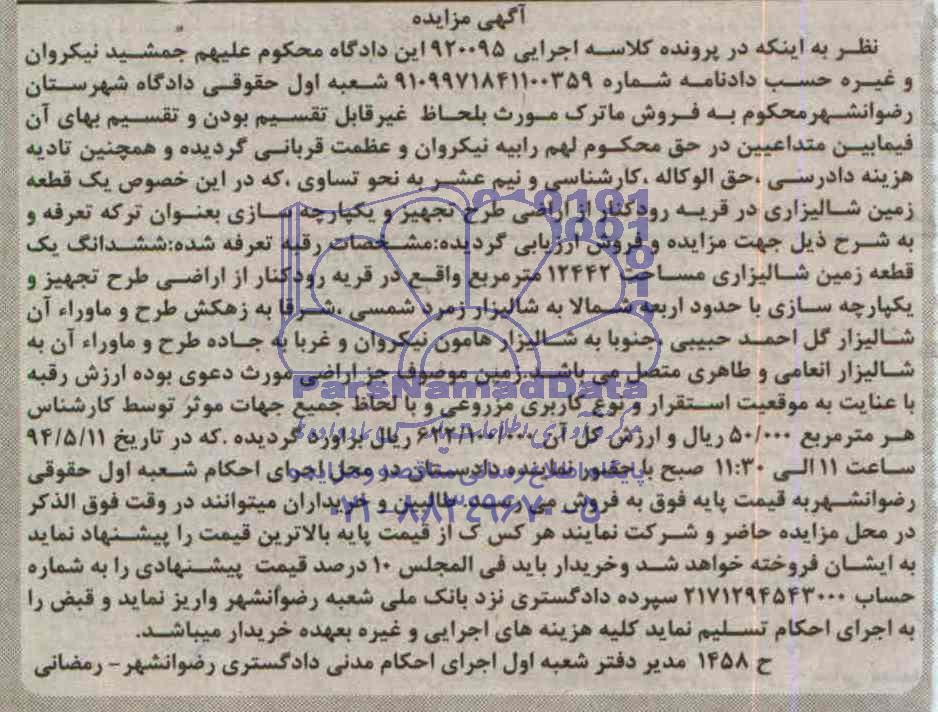 آگهی مزایده
نظر به اینکه در پرونده کلاسه اجرایی ۹۲۰۰۹۵ این دادگاه محکوم علیهم جمشید نیکروان
و غیره حسب دادنامه شماره ۹۱۰۹۹۷۱۸۴۱۱۰۰۳۵۹ شعبه اول حقوقی دادگاه شهرستان
رضوانشهرمحکوم به فروش ماترک مورث بلحاظ غیرقابل تقسیم بودن و تقسیم بهای آن
فیمابین متداعیین در حق محکوم لهم رابیه نیکروان و عظمت قربانی گردیده و همچنین تادیه
هزینه دادرسی ،حق الوکاله ،کارشناسی و نیم عشر به نحو تساوی ،که در این خصوص یک قطعه
زمین شالیزاری در قریه رودکنار از اراضی طرح تجهیز و یکپارچه سازی بعنوان ترکه تعرفه و
به شرح ذیل جهت مزایده و فروش ارزیابی گردیده:مشخصات رقبه تعرفه شده:ششدانگ یک
قطعه زمین شالیزاری مساحت ۱۲۴۴۲ مترمربع واقع در قریه رودکنار از اراضی طرح تجهیز و
یکپارچه سازی با حدود اربعه شمالا به شالیزار زمرد شمسی ،شرقا به زهکش طرح و ماوراء آن
شالیزار گل احمد حبیبی ،جنوبا به شالیزار هامون نیکروان و غربا به جاده طرح و ماوراء آن به
شالیزار انعامی و طاهری متصل می باشد.زمین موصوف جز اراضی مورث دعوی بوده ارزش رقبه
با عنایت به موقعیت استقرار و نوع کاربری مزروعی و با لحاظ جمیع جهات موثر توسط کارشناس
هر مترمربع ۵۰/۰۰۰ ریال و ارزش کل آن ۶۲۲/۱۰۰/۰۰۰ ریال براورد گردیده .که در تاریخ ۹۴/۵/۱۱
ساعت ۱۱ الی ۱۱:۳۰ صبح با حضور نماینده دادستان در محل اجرای احکام شعبه اول حقوقی
رضوانشهربه قیمت پایه فوق به فروش می رسد. طالبین و خریداران میتوانند در وقت فوق الذکر
در محل مزایده حاضر و شرکت نمایند هر کس ک از قیمت پایه بالاترین قیمت را پیشنهاد نماید
به ایشان فروخته خواهد شد وخریدار باید فی المجلس ۱۰ درصد قیمت پیشنهادی را به شماره
حساب ۲۱۷۱۲۹۴۵۴۳۰۰۰ سپرده دادگستری نزد بانک ملی شعبه رضوانشهر واریز نماید و قبض را
به اجرای احکام تسلیم نماید کلیه هزینه های اجرایی و غیره بعهده خریدار میباشد.
ح ۱۴۵۸ مدیر دفتر شعبه اول اجرای احکام مدنی دادگستری رضوانشهر- رمضانی
ParsNamadData